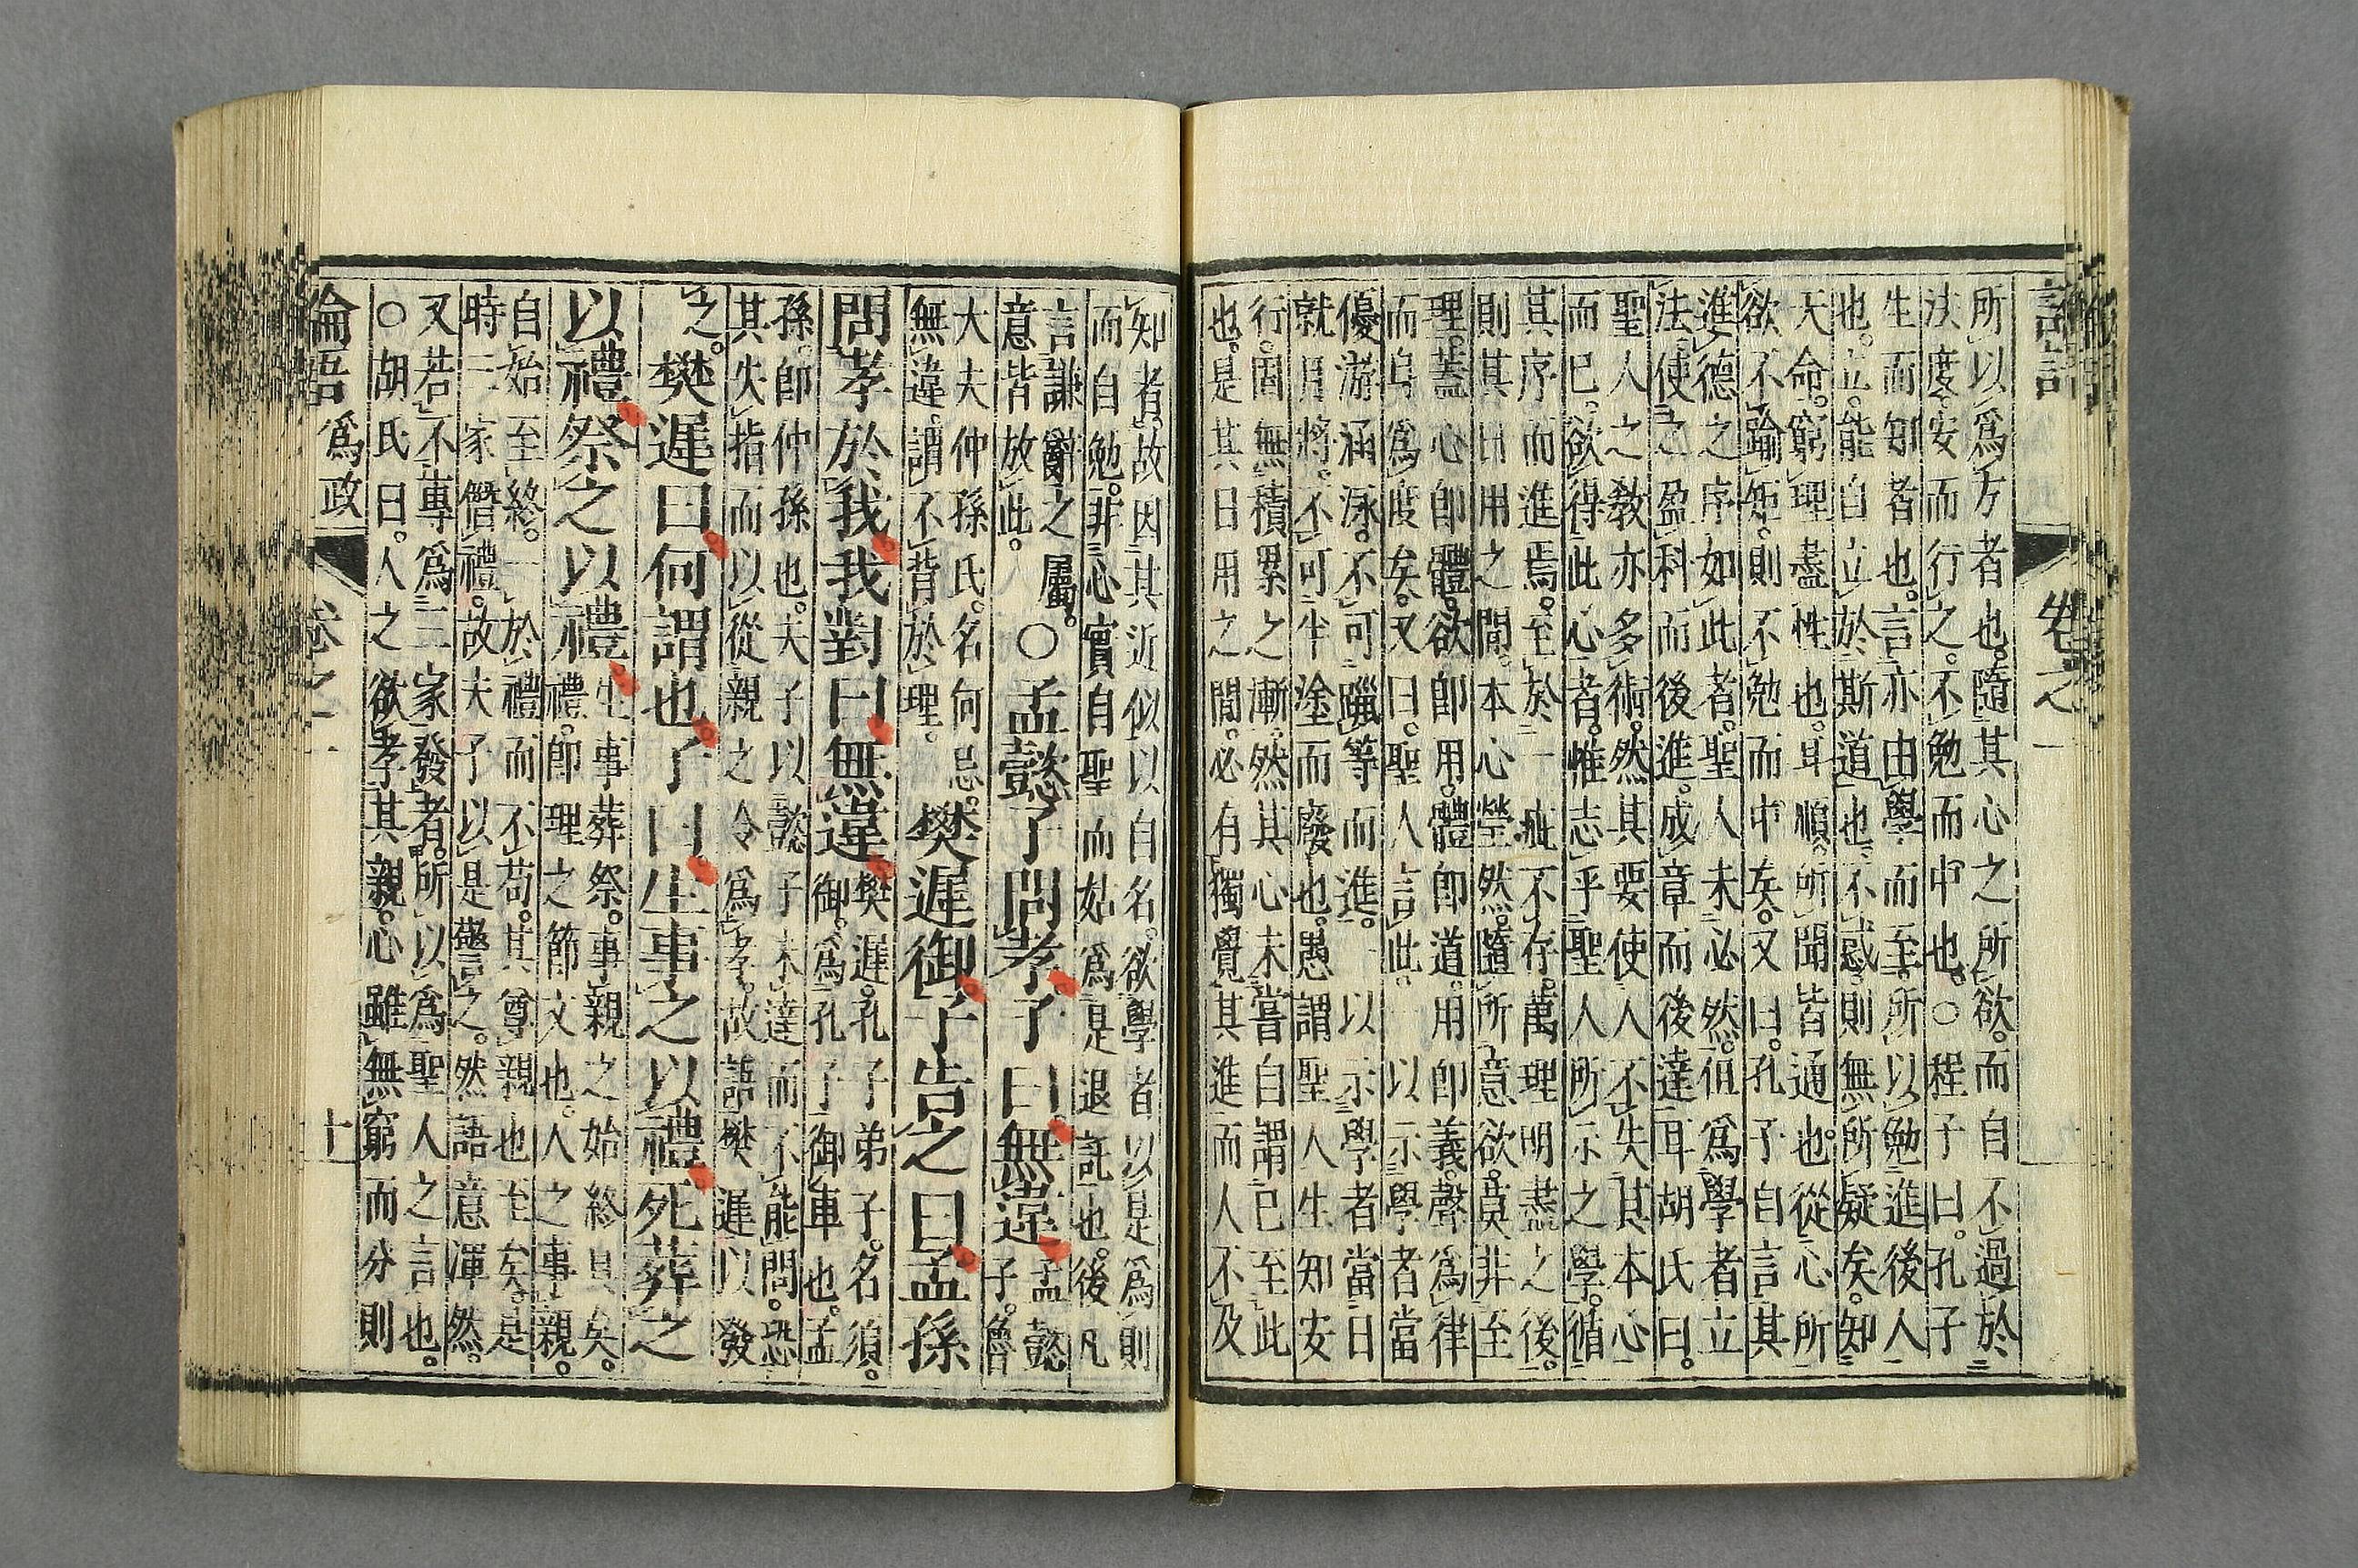 論語 卷之一
所以爲方者也。隨其心之所欲。而自不過於
法度。安而行之。不勉而中也。○程子曰。孔子
生而知者也。言亦由學而至。所以勉進後人
也。立。能自立於斯道也。不惑。則無所疑矣。知
天命。窮理盡性也。耳順。所聞皆通也。從心所
欲不踰矩。則不勉而中矣。又曰。孔子自言其
進德之序如此者。聖人未必然。但爲學者立
法。使之盈科而後進。成章而後達耳。胡氏曰。
聖人之教亦多術。然其要使人不失其本心
而已。欲得此心者。惟志乎聖人所示之學。循
其序而進焉。至於一疵不存。萬理明盡之後。
則其日用之間。本心瑩然。隨所意欲。莫非至
理。蓋心卽體。欲卽用。體卽道。用卽義。聲爲律
而身爲度矣。又曰。聖人言此。一以示學者當
優游涵泳。不可躐等而進。二以示學者當日
就月將。不可半塗而廢也。愚謂聖人生知安
行。固無積累之漸。然其心未嘗自謂已至此
也。是其日用之間。必有獨覺其進而人不及
知者。故因其近似以自名。欲學者以是爲則
而自勉。非心實自聖而姑爲是退託也。後凡
言謙辭之屬。
意皆放此。
○孟懿子問孝。子曰。無違。
孟懿
子。魯
大夫仲孫氏。名何忌。
無違。謂不背於理。
樊遲御。子告之曰。孟孫
問孝於我。我對曰。無違。
樊遲。孔子弟子。名須。
御。爲孔子御車也。孟
孫。卽仲孫也。夫子以懿子未達而不能問。恐
其失指。而以從親之令爲孝。故語樊遲以發
之。
樊遲曰。何謂也。子曰。生事之以禮。死葬之
以禮。祭之以禮。
生事葬祭。事親之始終具矣。
禮。卽理之節文也。人之事親。
自始至終。一於禮而不苟。其尊親也至矣。是
時三家僭禮。故夫子以是警之。然語意渾然。
又若不專爲三家發者。所以爲聖人之言也。
○胡氏曰。人之欲孝其親。心雖無窮而分則
論語 爲政 卷之一 十一